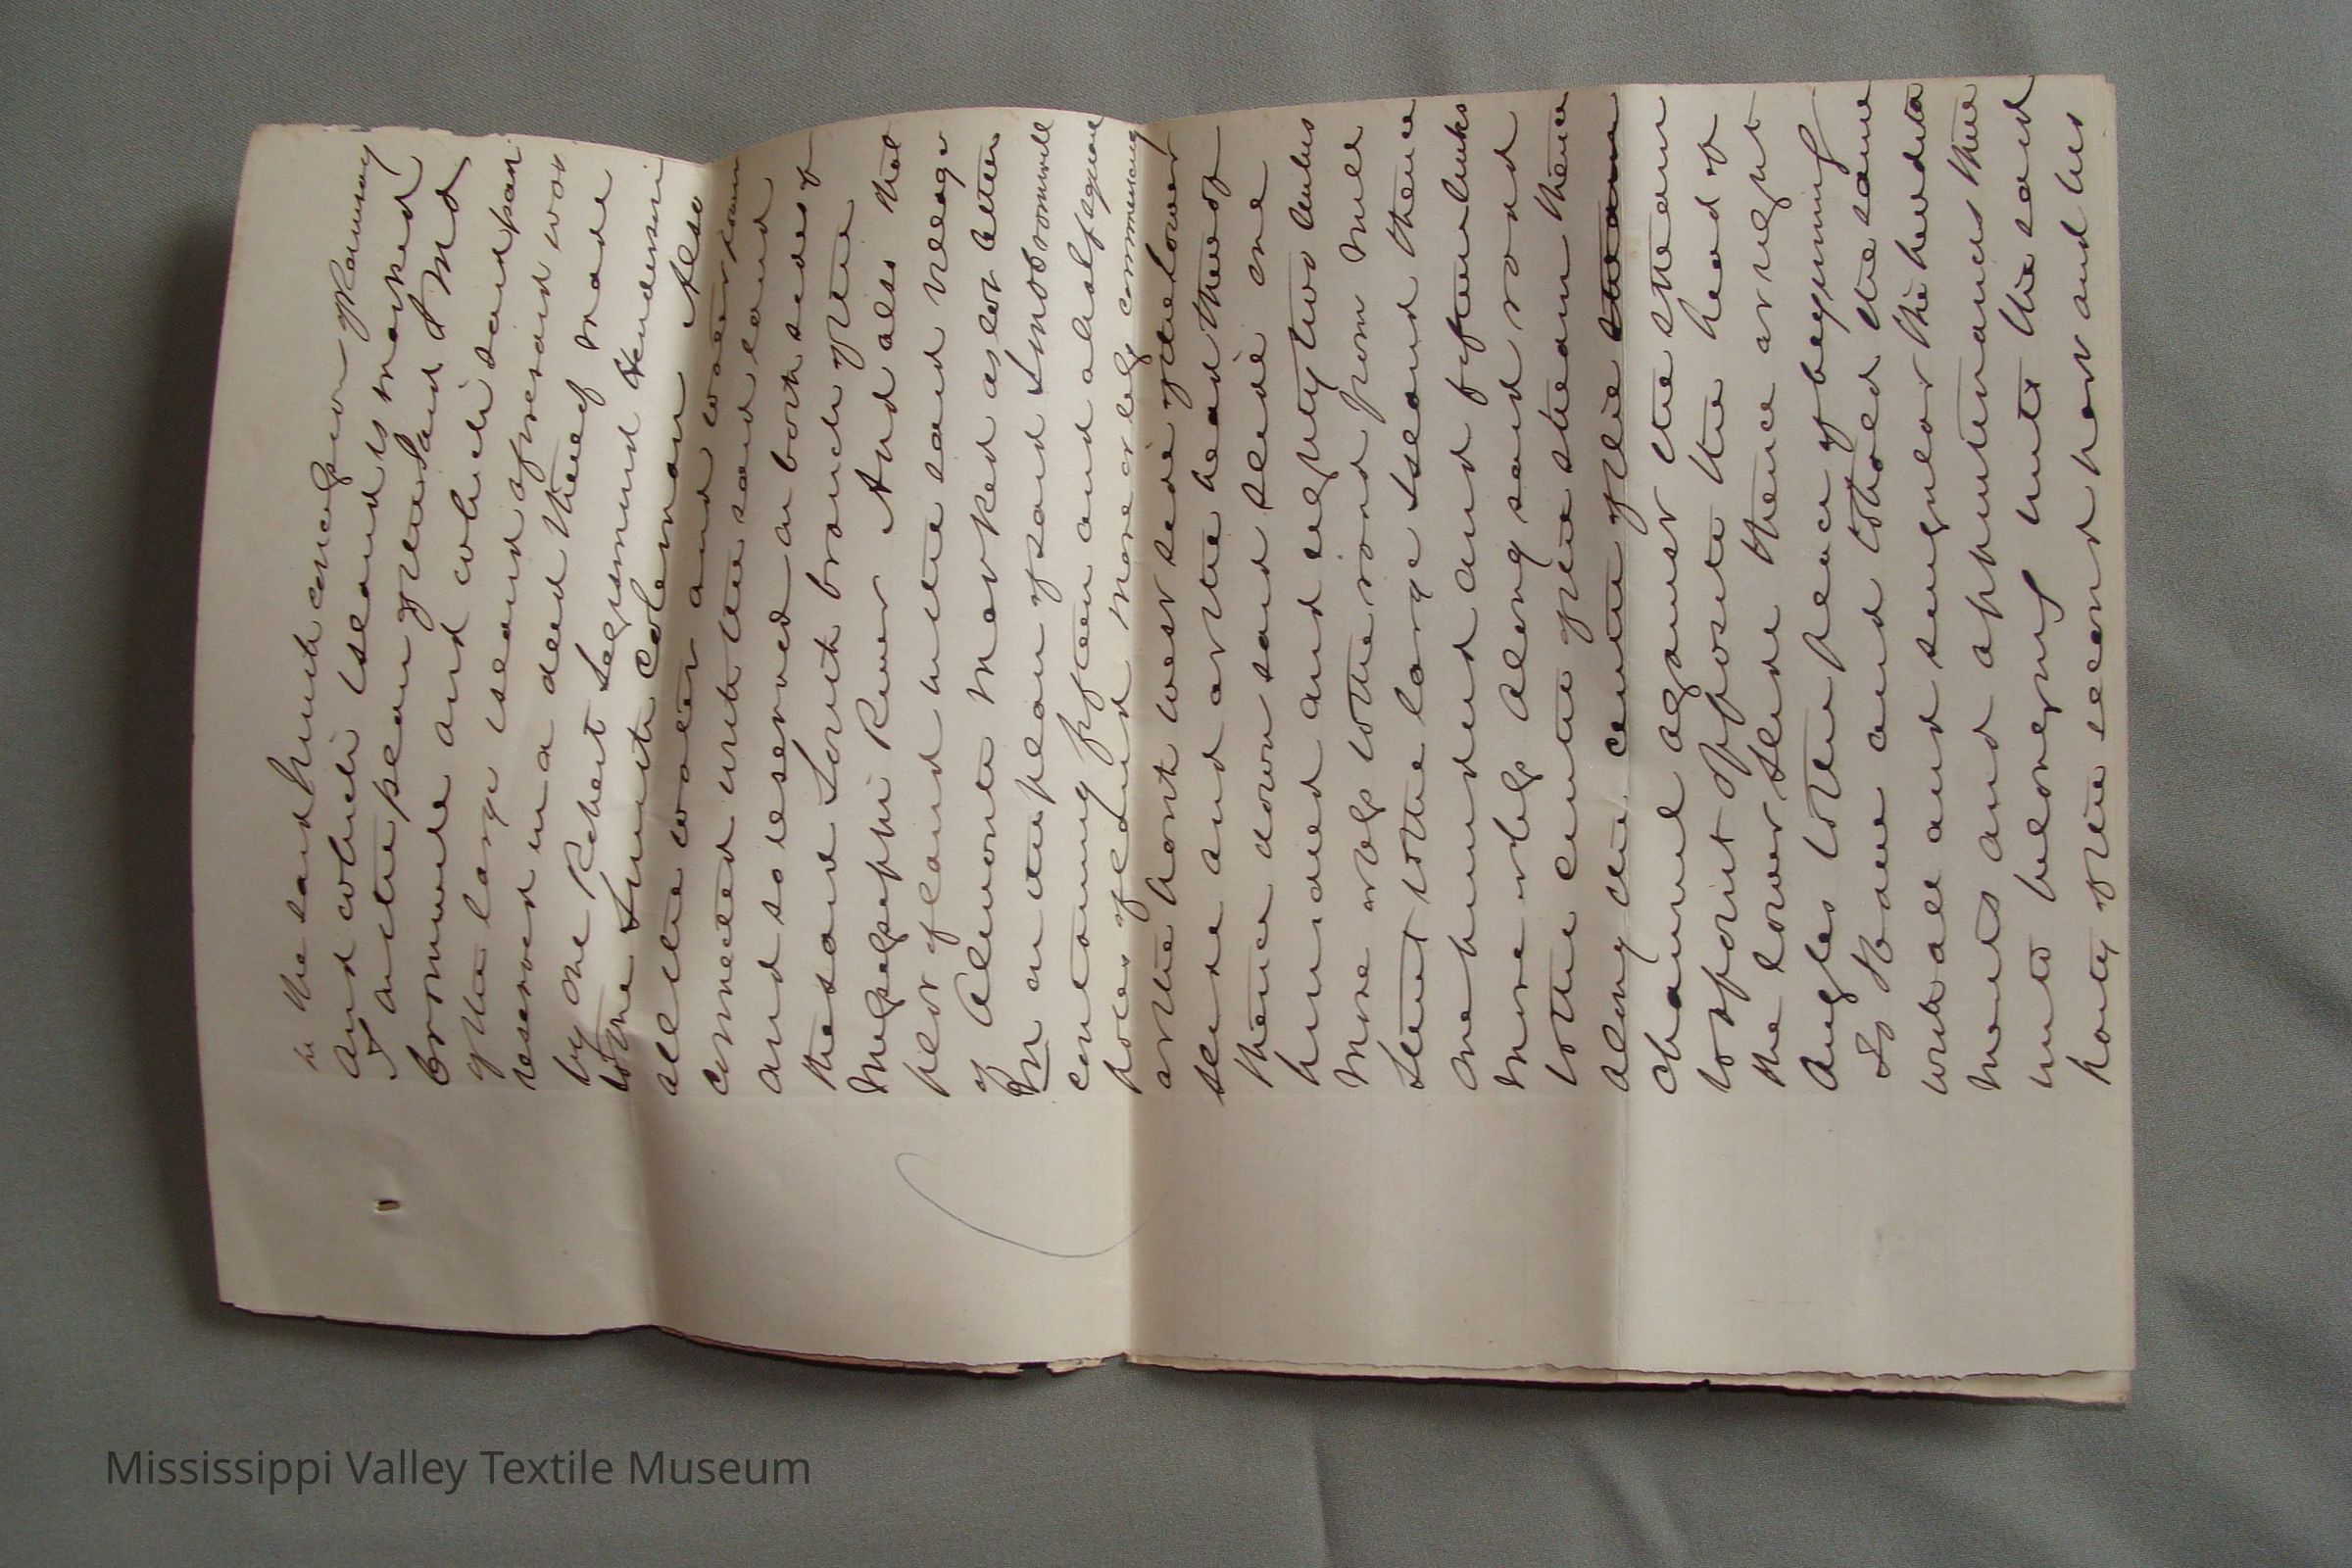 in the said ninth concession of Ramsay
and which Island is marked
I in the plan of the said I and
Brownvile and which said part
of the large island aforesaid was
reserved in a deed thereof made
by one Robert Segismund Henderson
to one Smith Coleman Also
all the water and water power
connected with the said land
and so reserved on both sides of
the said South branch of the
Mississippi River And also that
plot of land in the said village
of Almonte Marked as lot letter
M on the plan of said I not Bromvill
containing fifteen and a half square
poles of land more or less commencing
at the North West side of the Lower
slide and at the head thereof
thence down said slide one
hundred and eighty two links
More or less to the road from Mill
Street to the large Island thence
one hundred and fifteen links
more or less Along said road
to the centre of the stream thence
along the centre of the stream
channel against the stream
to a point opposite the head of
the lower slide thence at right
Angles to the place of beginning
To Have and to hold the same
with all and singular the heredita
ments and appurtenances there
unto belonging unto the said
party of the second part and his
Mississippi Valley Textile Museum